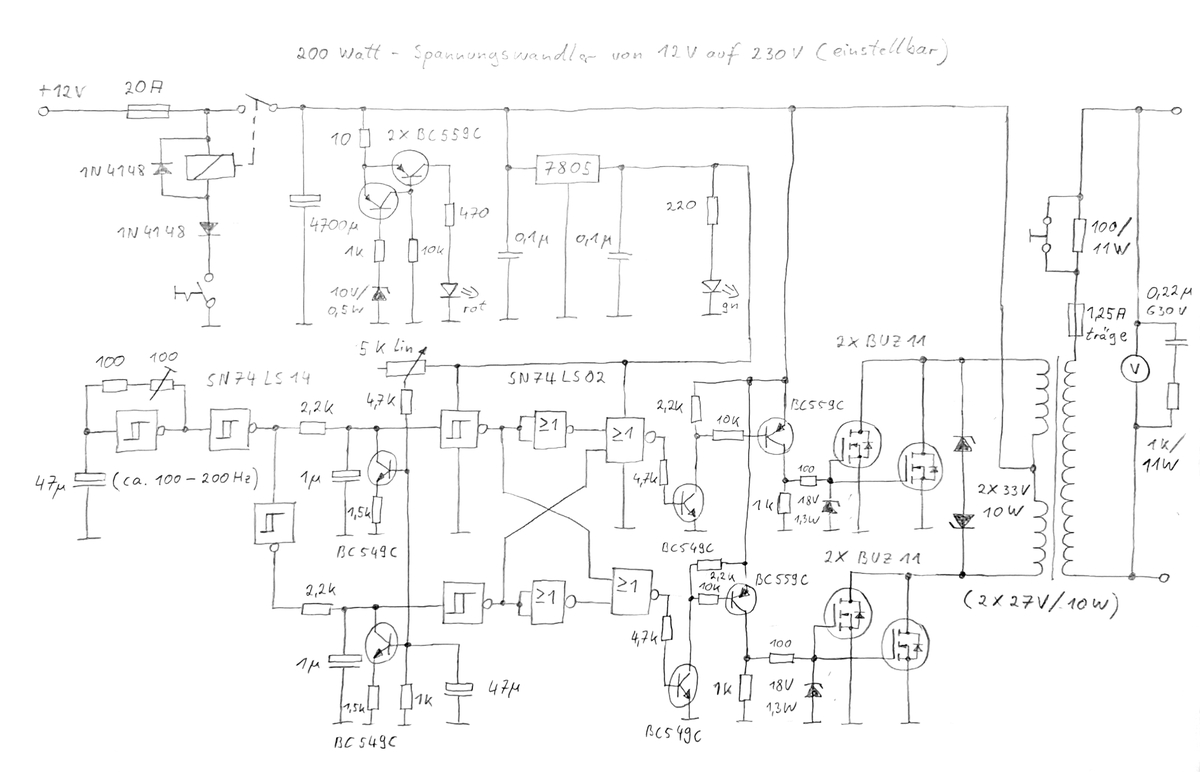 200 Watt - Spannungswandler von 12V auf 230V (einstellbar)
+12V
20A
1N4148
1N4148
4700µ
10
2X BC559C
1k
10k
470
10V/
0,5W
rot
7805
0,1µ
0,1µ
220
gn
100/
11W
1,25A
träge
0,22µ
630V
V
1k/
11W
5k lin
100
100
SN74LS14
47µ
(ca. 100-200Hz)
2,2k
1µ
4,7k
1,5k
BC549C
SN74LS02
≥1
≥1
2,2k
10k
4,7k
BC549C
BC559C
1k
100
18V
1,3W
2X BUZ11
2X 33V
10W
2,2k
1µ
1,5k
BC549C
1k
47µ
≥1
≥1
4,7k
2,2k
10k
BC559C
BC549C
1k
100
18V
1,3W
2X BUZ11
(2X27V/10W)